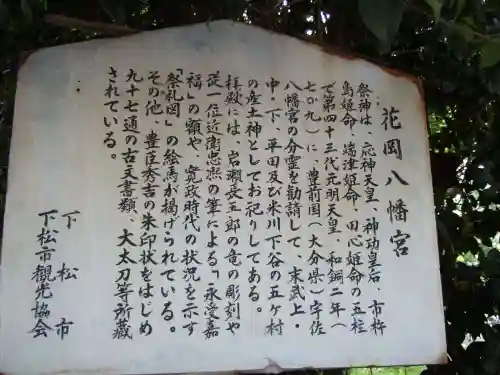 花岡八幡宮
祭神は、応神天皇、神功皇后、市杵
島姫命、端津姫命、田心姫命の五柱
で第四十三代元明天皇、和銅二年（
七〇九）に、豊前国（大分県）宇佐
八幡宮の分霊を勧請して、末武上・
中・下、平田及び米川下谷の五ヶ村
の産土神としてお祀りしてある。
拝殿には、岩瀬長五郎の竜の彫刻や
従一位近衛忠熈の筆による「永受嘉
福」の額や、寛政時代の状況を示す
「祭礼図」の絵馬が掲げられている。
その他、豊臣秀吉の朱印状をはじめ
九十七通の古文書類、大太刀等所蔵
されている。
下松市
下松市観光協会